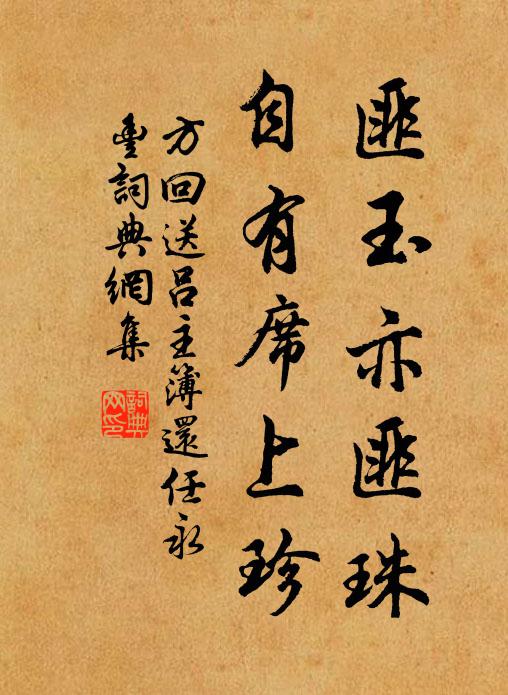 匪玉亦匪珠
自有席上珍
方回送呂主簿還任永
豐詞典網集
詞典
网印